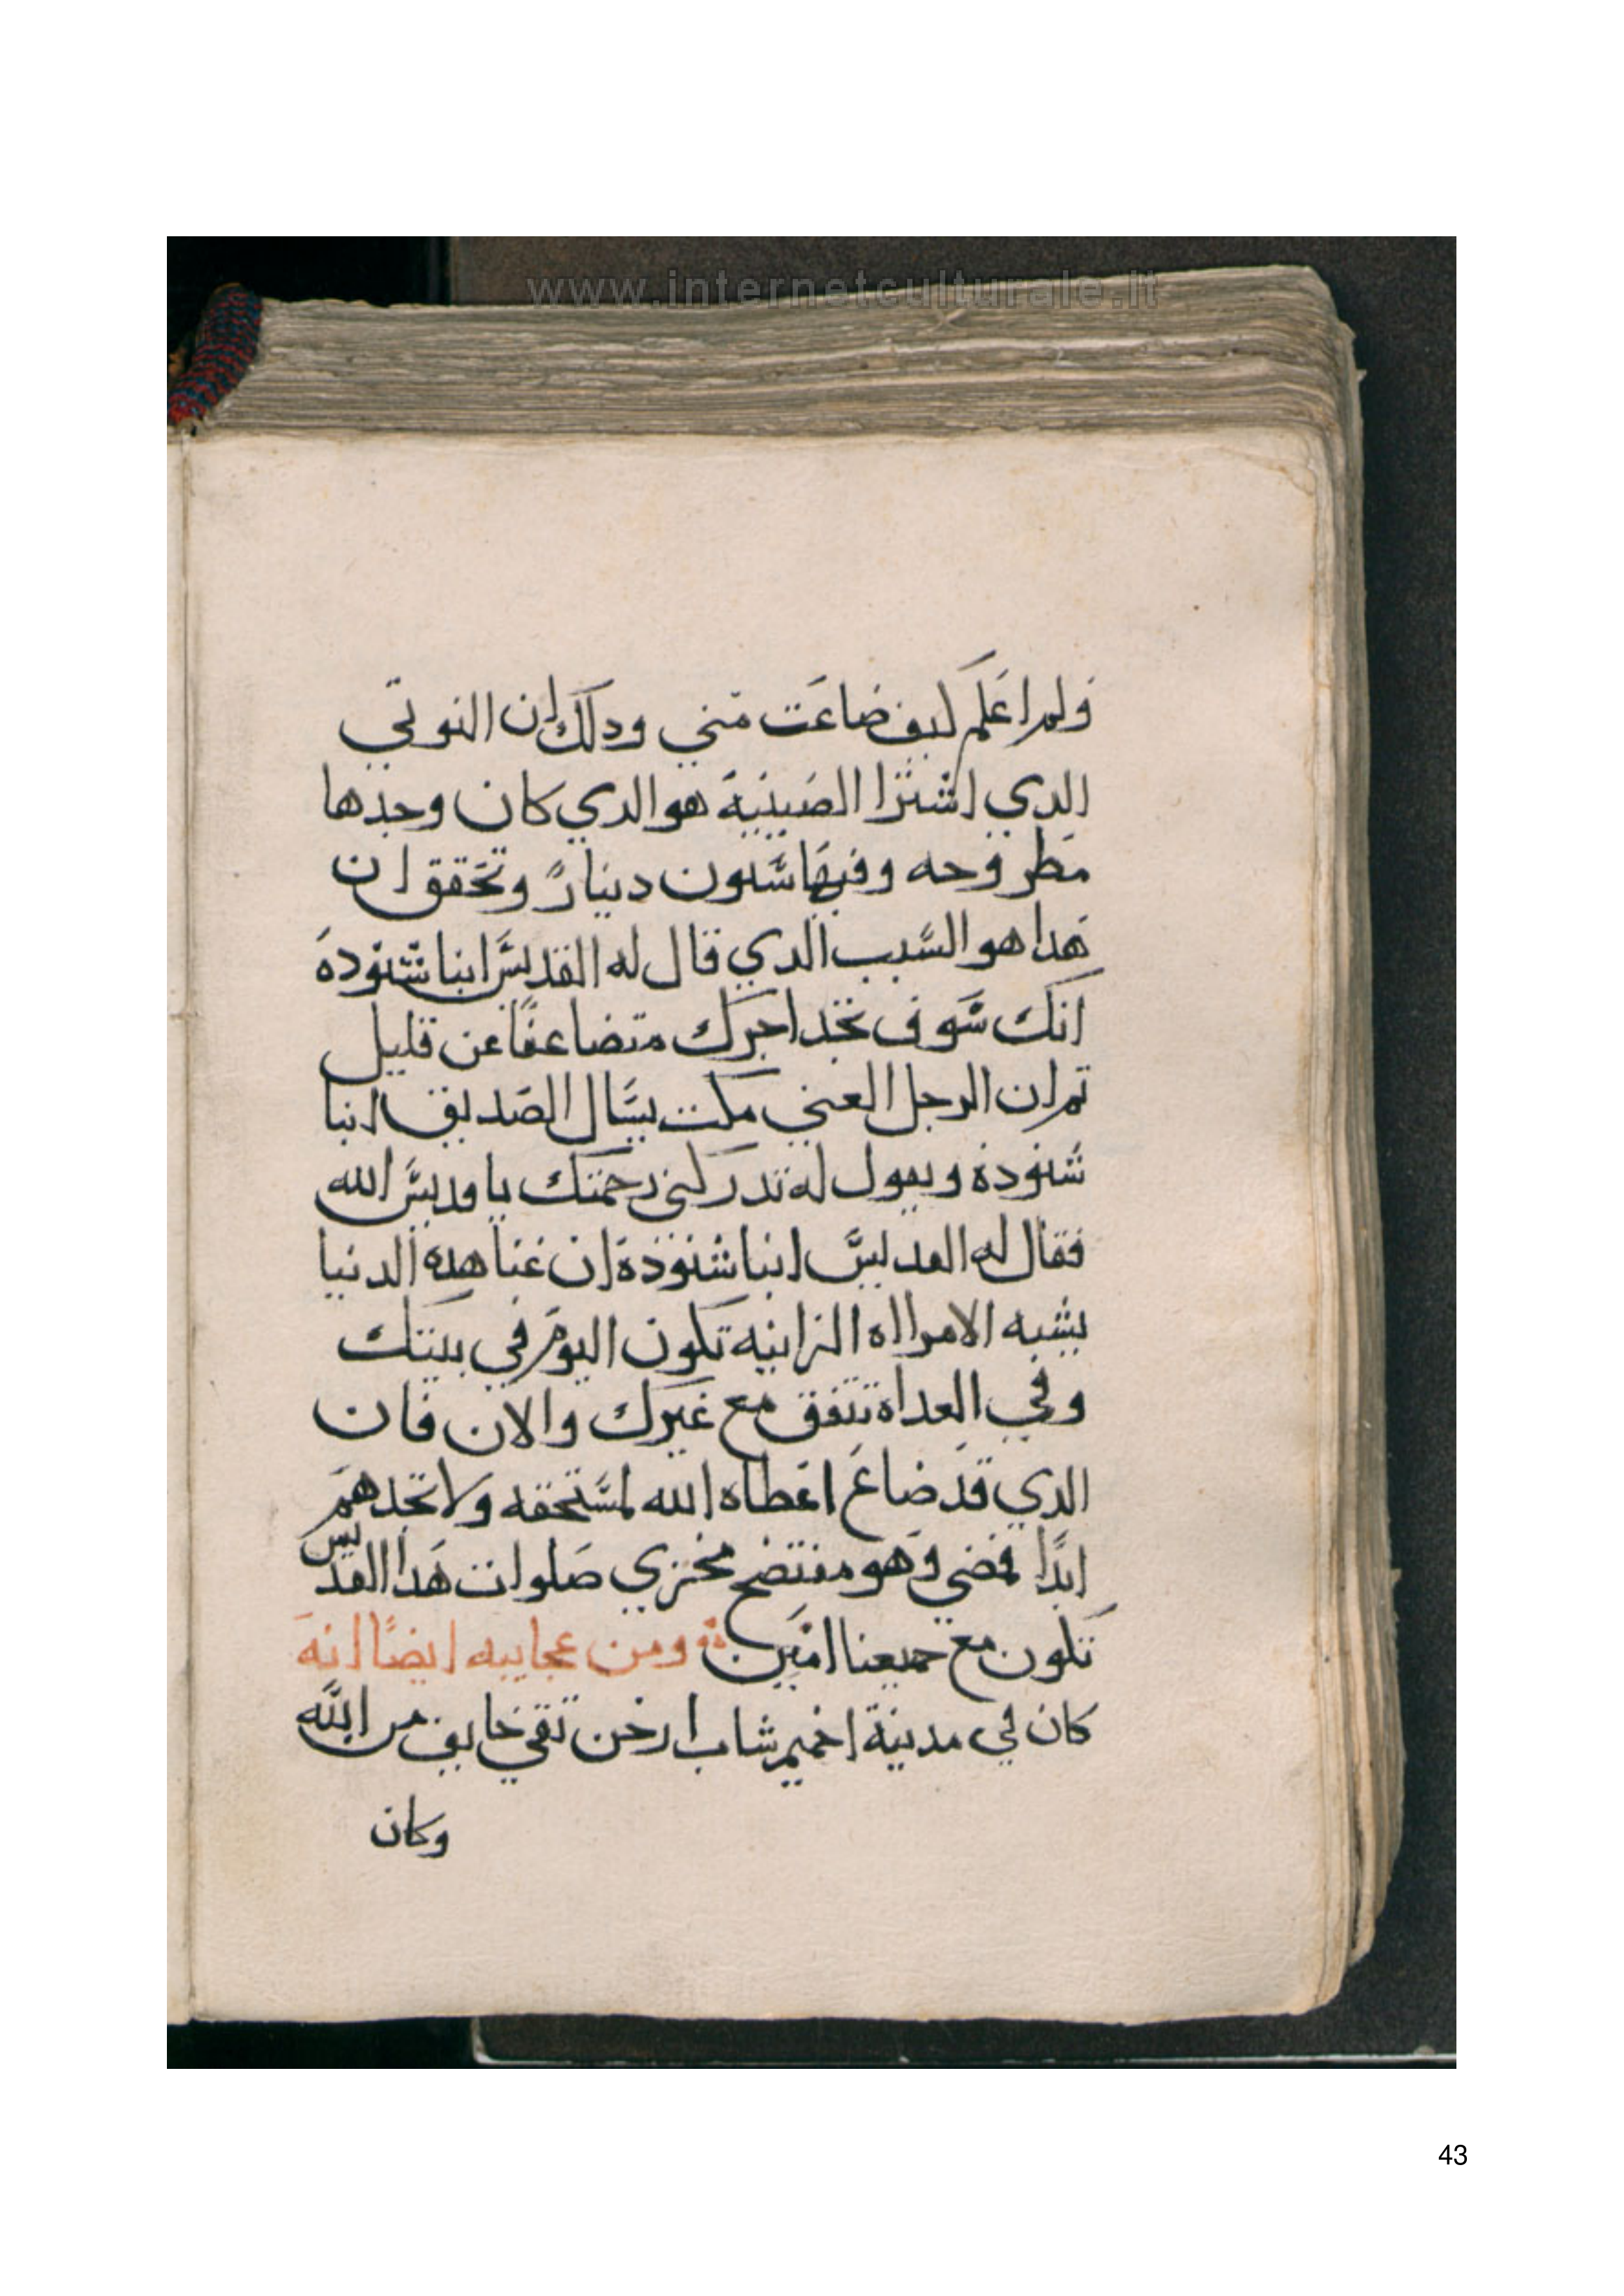 www.internetculturale.it
ولم اعلم كيف ضاعت مني ودلك ان النوتي
الدي اشترا الصينية هو الدي كان وجدها
مطروحه وفيها ستون دينارً وتحقق ان
هدا هو السبب الدي قال له القديس انبا شنودة
انك سوف تجد اجرك متضاعفًا عن قليل
تم ان الرجل الغني مكت يسال الصديق انبا
شنودة ويقول له تدركني رحمتك يا قديس الله
فقال له القديس انبا شنودة ان غنا هده الدنيا
يشبه الامرااه الزانيه تكون اليوم في بيتك
وفي الغداة تتفق مع غيرك والان فان
الدي قد ضاع اعطاه الله لمستحقه ولا تجدهم
ابدًا فمضي وهو مفتضح مخزي صلوات هدا القديس
تكون مع جميعنا امين ومن عجايبه ايضًا انه
كان في مدينة اخميم شاب ارخن تقي خايف من الله
وكان
43